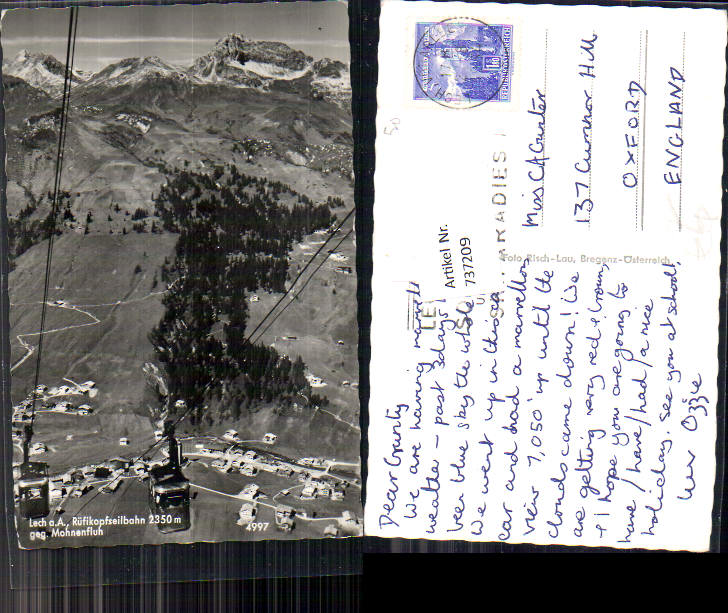 Lech a.A., Rüfikopfseilbahn 2350 m
geg. Mohnenfluh
4997
REPUBLIK ÖSTERREICH
1.80
ARADIES!
LE
Artikel Nr.
737209
Foto Risch-Lau, Bregenz-Österreich
Miss CA Gunter
137 Cumnor Hill
OXFORD
ENGLAND
Dear Grunty
We are having
weather - past 3 days
been blue sky the whole
We went up in this
car and had a marvellous
view 7,050' up until the
clouds came down! We
are getting very red & brown,
& I hope you are going to
have/have/had/a nice
holiday. See you at school,
luv Ozzie